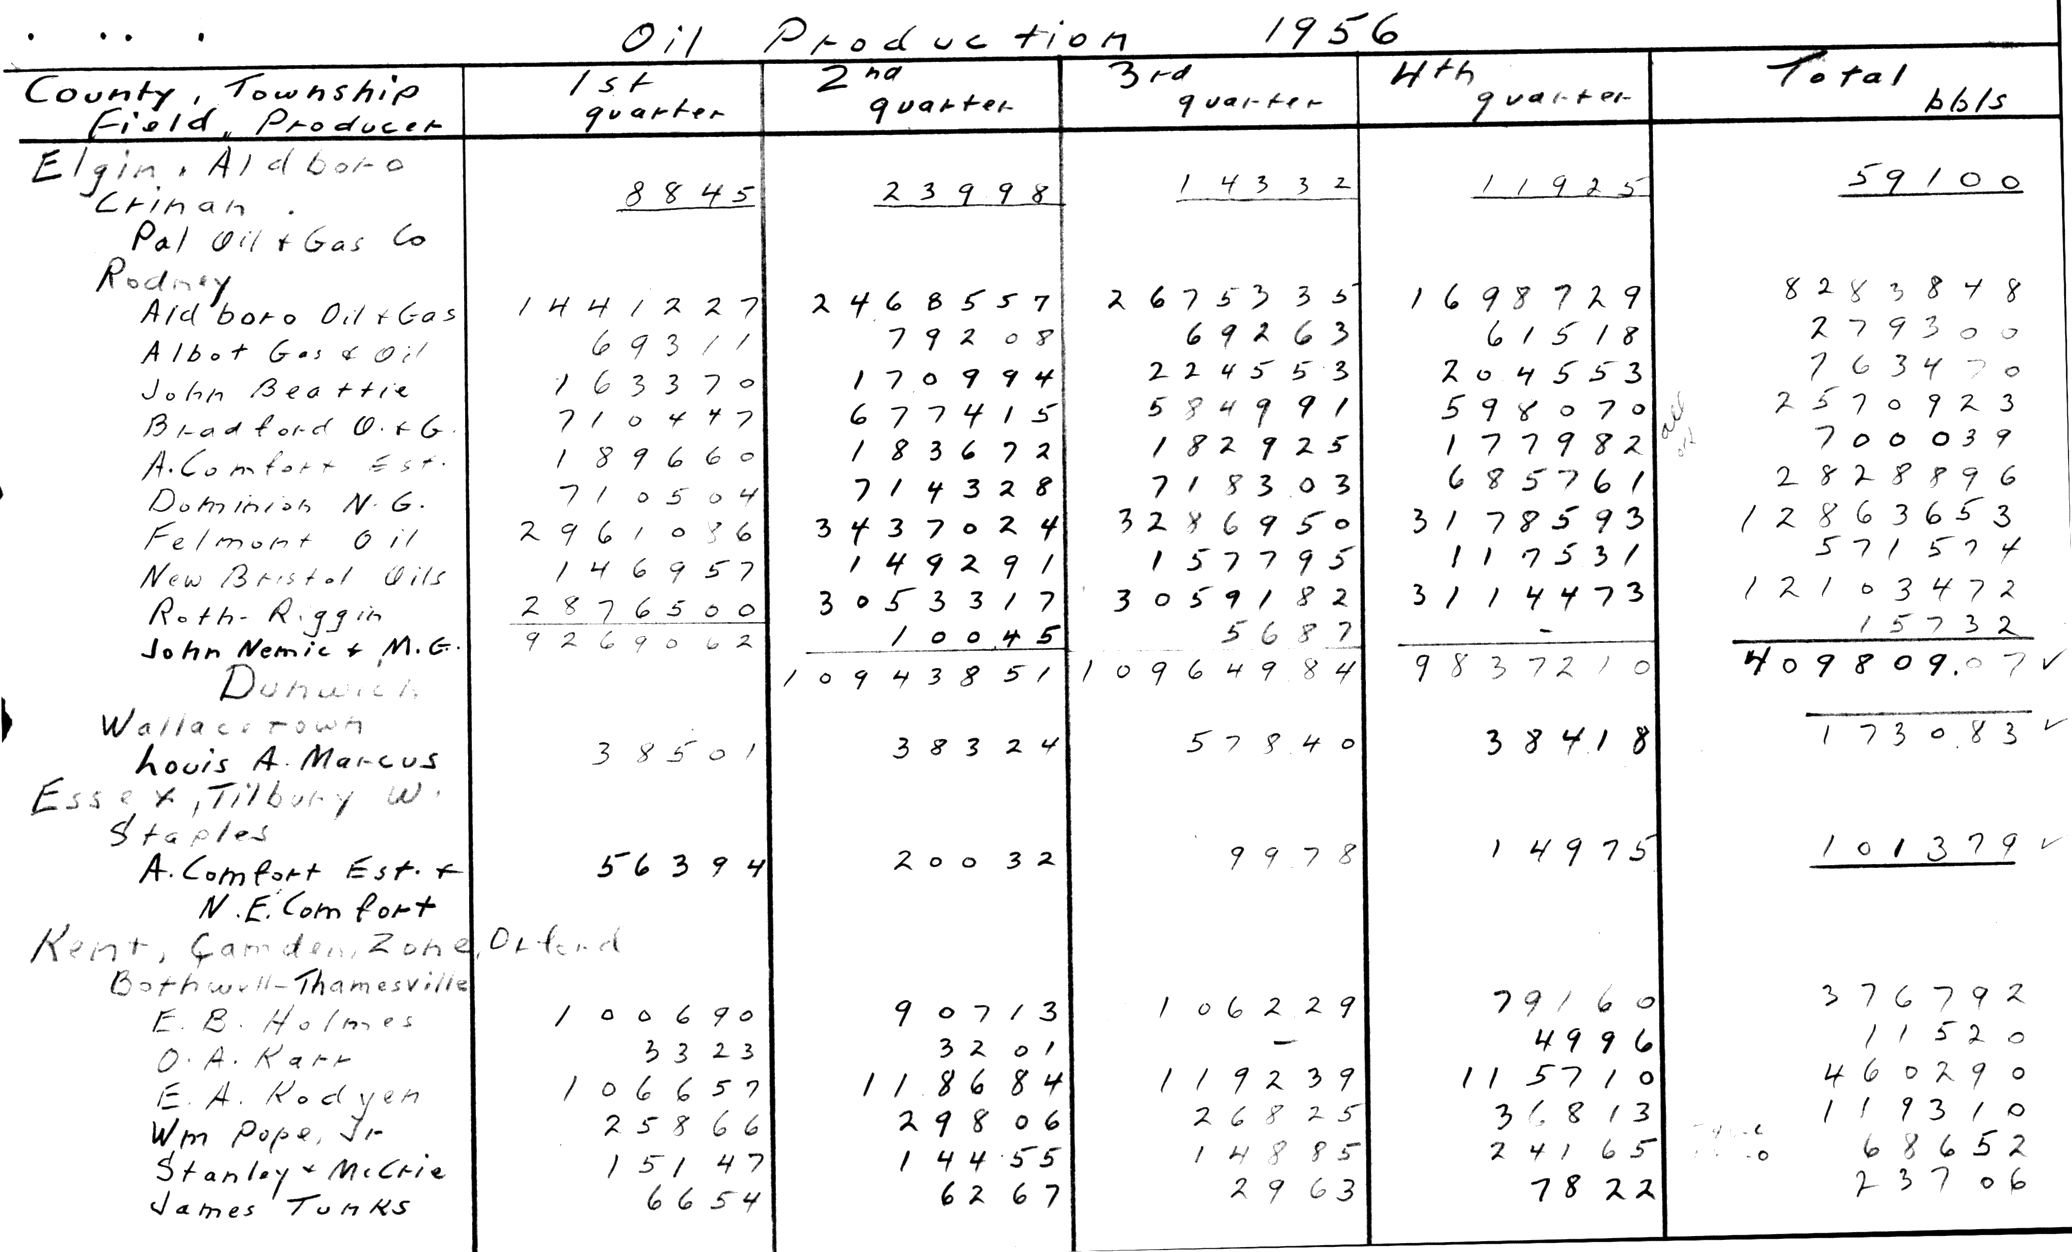 Oil Production 1956
County, Township Field, Producer 1st quarter 2nd quarter 3rd quarter 4th quarter Total bbls
Elgin, Aldboro
Crinan 8845 23998 14332 11925 59100
Pal Oil + Gas Co
Rodney
Aldboro Oil + Gas 1441227 2468557 2675335 1698729 8283848
Albot Gas & Oil 69311 79208 69263 61518 279300
John Beattie 163370 170994 224553 204553 763470
Bradford O. + G. 710447 677415 584991 598070 2570923
A. Comfort Est. 189660 183672 182925 177982 700039
Dominion N. G. 710504 714328 718303 685761 2828896
Felmont Oil 2961086 3437024 3286950 3178593 12863653
New Bristol Oils 146957 149291 157795 117531 571574
Roth-Riggin 2876500 3053317 3059182 3114473 12103472
John Nemic + M.G. 9269062 10045 5687 - 15732
Dunwich 10943851 10964984 9837210 409809.07 ✓
Wallacetown
Louis A. Marcus 38501 38324 57840 38418 173083 ✓
Essex, Tilbury W.
Staples
A. Comfort Est. + 56394 20032 9978 14975 101379 ✓
N. E. Comfort
Kent, Camden, Zone, Orford
Bothwell-Thamesville
E. B. Holmes 100690 90713 106229 79160 376792
O. A. Karr 3323 3201 - 4996 11520
E. A. Kodyen 106657 118684 119239 115710 460290
Wm Pope, Jr 25866 29806 26825 36813 119310
Stanley + McCrie 15147 14455 14885 24165 68652
James Tunks 6654 6267 2963 7822 23706